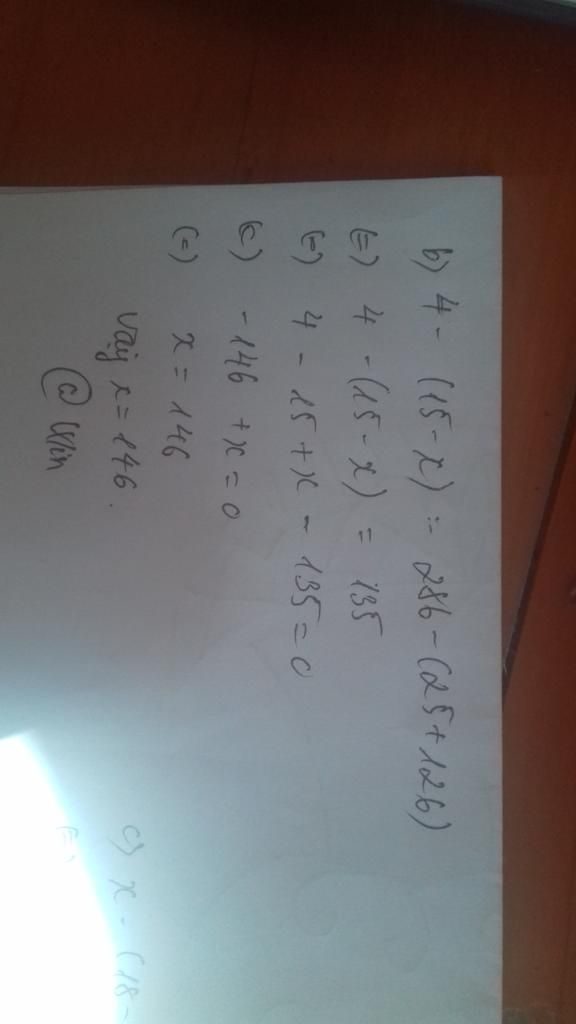 b) 4 - (15 - x) = 286 - (25 + 126)
(=) 4 - (15 - x) = 135
(=) 4 - 15 + x - 135 = 0
(=) - 146 + x = 0
(=) x = 146
Vậy x = 146.
@ Win
c) x - (18 -
(=)